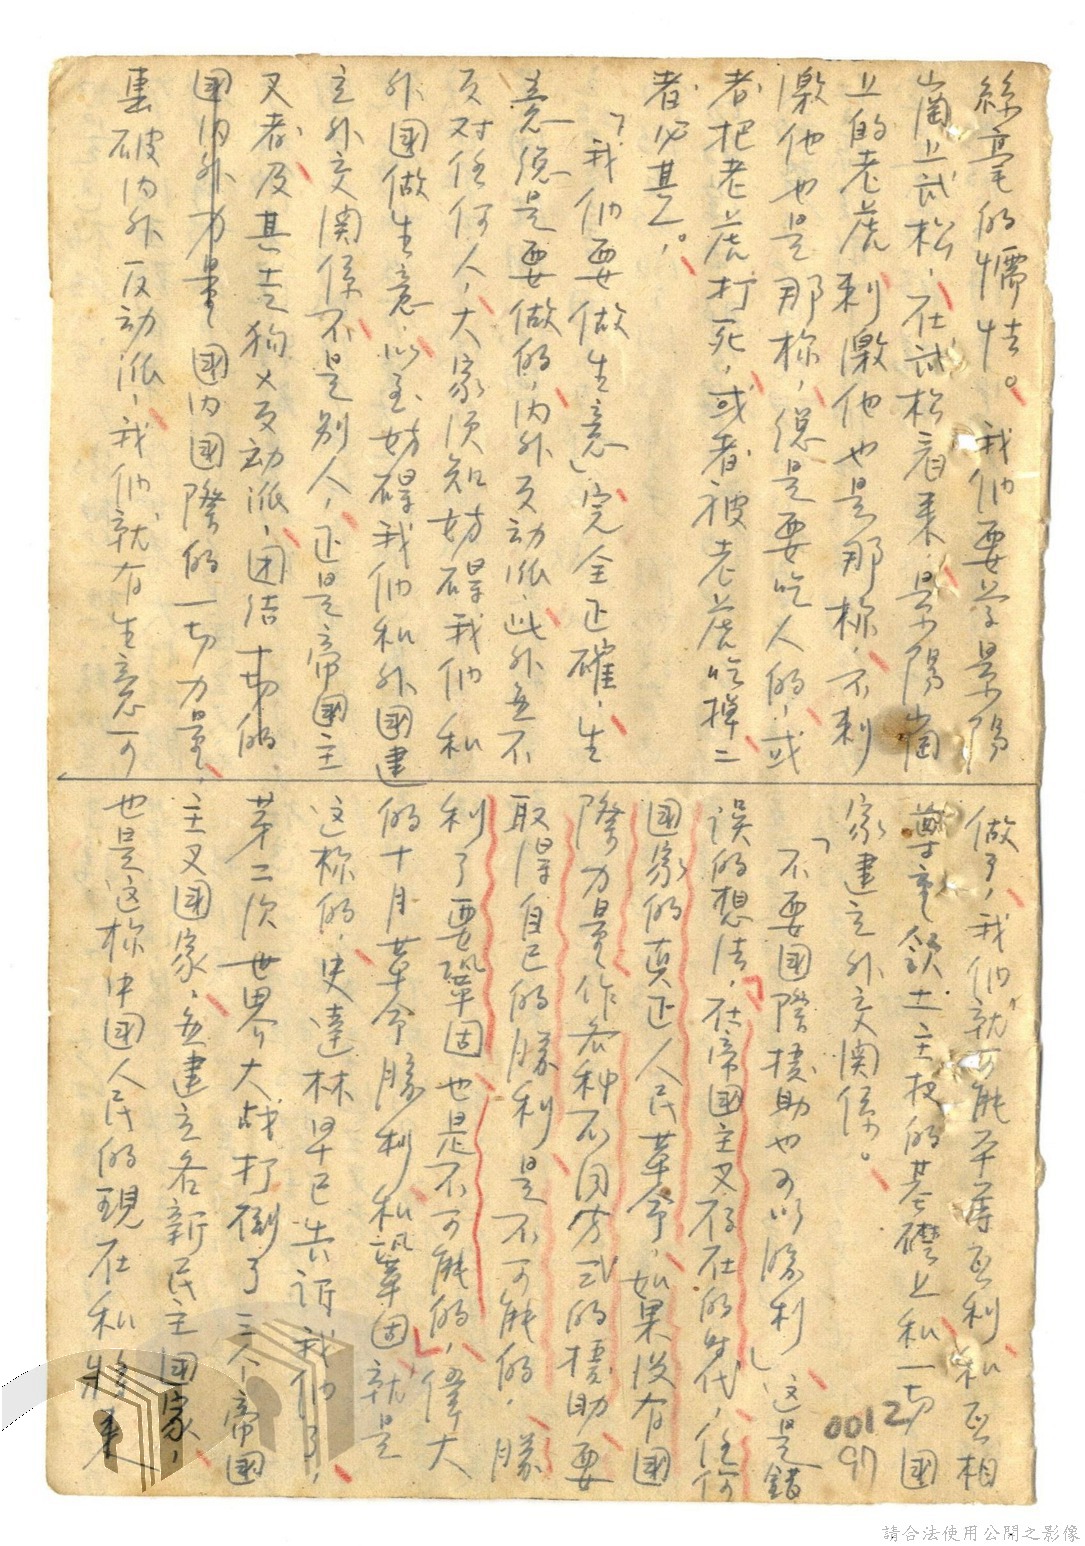 絲毫的懦怯。我們要学景陽
崗上武松,在武松看来,景陽崗
上的老虎刺激他也是那樣,不刺
激他也是那樣,總是要吃人的,或
者把老虎打死,或者被老虎吃掉二
者必其一。
「我們要做生意」完全正確,生
意總是要做的,内外反动派,此外並不
反对任何人,大家須知妨碍我們和
外國做生意,以至妨碍我們和外國建
立外交関係不是別人,正是帝國主
义者及其走狗×反动派,团结一切的
国内外力量,國内國際的一切力量,
击破内外反动派,我們就有生意可
做了,我們就可能平等互利和互相
尊重領土主权的基礎上和一切國
家建立外交関係。
「不要國際援助也可以勝利」這是錯
误的想法,在帝國主义存在的时代,任何
國家的真正人民革命,如果没有國
際力量作各种不同方式的援助要
取得自己的勝利是不可能的,勝
利了要鞏固也是不可能的,偉大
的十月革命勝利和鞏固就是
這樣的,史達林早已告訴我們了,
第二次世界大战打倒了三个帝國
主义國家,並建立各新民主國家,
也是這樣中國人民的現在和將来
0012
97
請合法使用公開之影像